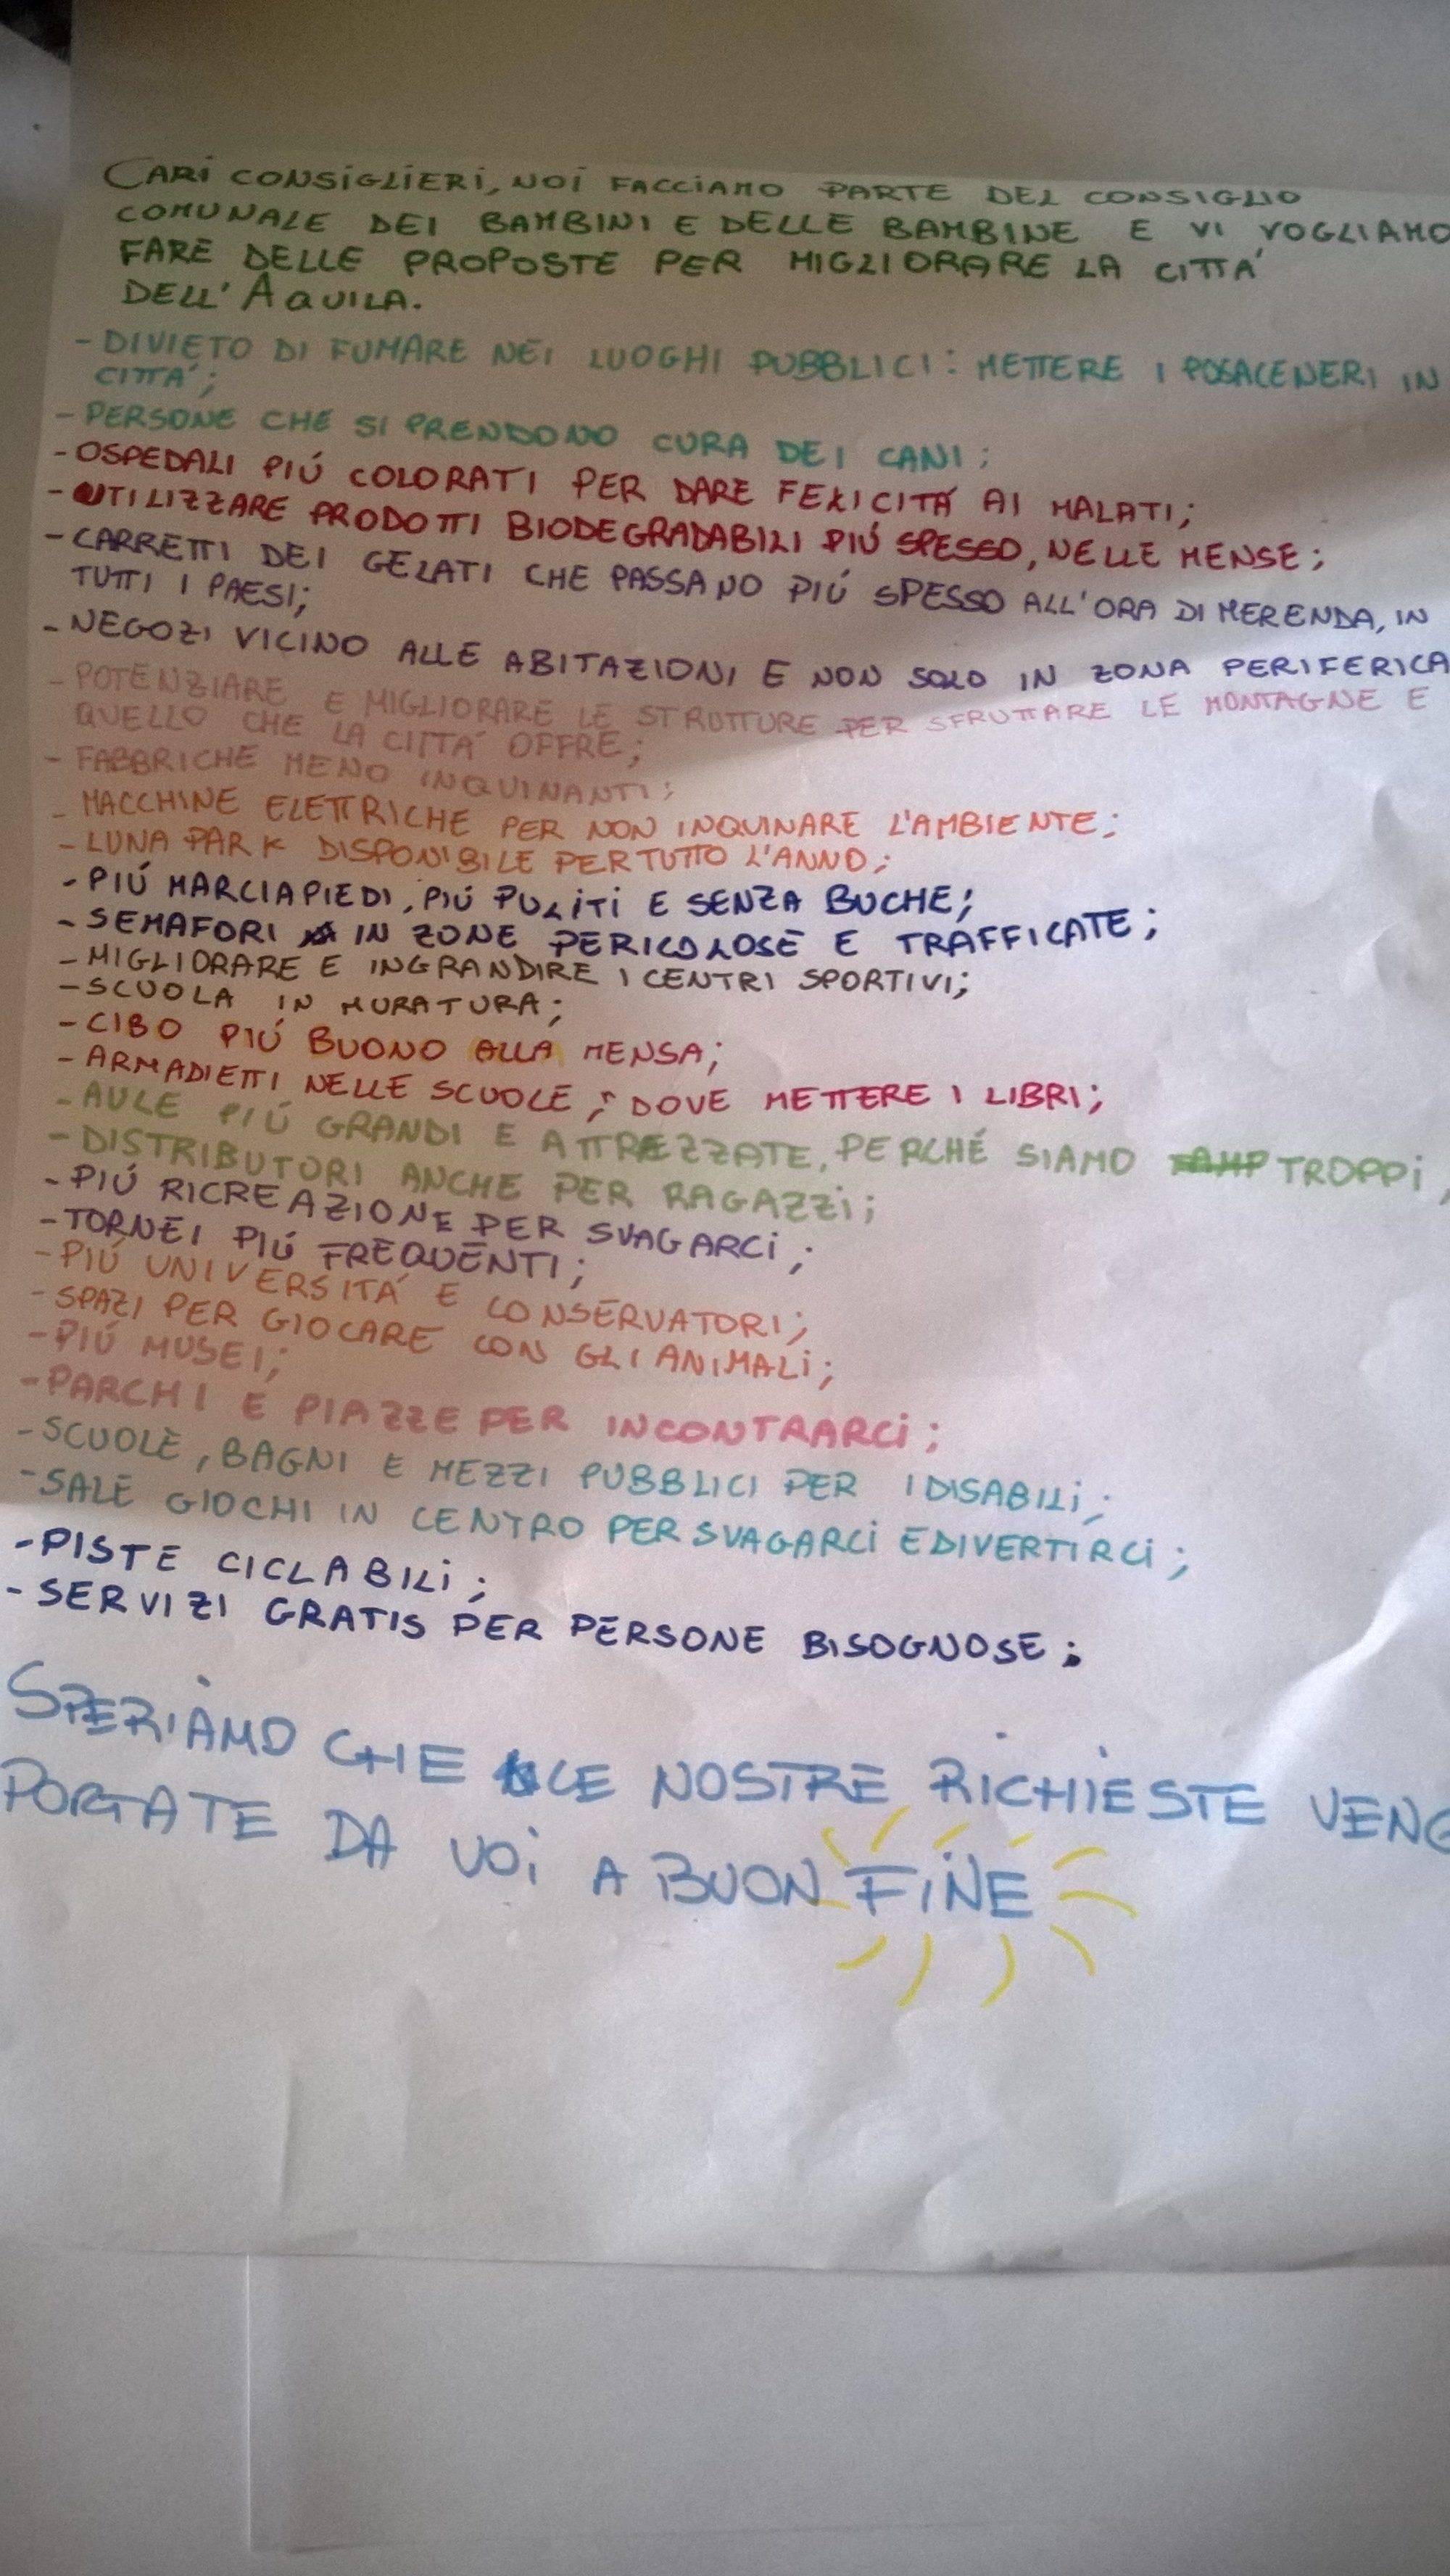 CARI CONSIGLIERI, NOI FACCIAMO PARTE DEL CONSIGLIO
COMUNALE DEI BAMBINI E DELLE BAMBINE E VI VOGLIAMO
FARE DELLE PROPOSTE PER MIGLIORARE LA CITTÁ
DELL'AQUILA.
- DIVIETO DI FUMARE NEI LUOGHI PUBBLICI: METTERE I POSACENERI IN
CITTÁ;
- PERSONE CHE SI PRENDONO CURA DEI CANI;
- OSPEDALI PIÚ COLORATI PER DARE FELICITÁ AI MALATI;
- UTILIZZARE PRODOTTI BIODEGRADABILI PIÚ SPESSO, NELLE MENSE;
- CARRETTI DEI GELATI CHE PASSANO PIÚ SPESSO ALL'ORA DI MERENDA, IN
TUTTI I PAESI;
- NEGOZI VICINO ALLE ABITAZIONI E NON SOLO IN ZONA PERIFERICA
- POTENZIARE E MIGLIORARE LE STRUTTURE PER SFRUTTARE LE MONTAGNE E
QUELLO CHE LA CITTÁ OFFRE;
- FABBRICHE MENO INQUINANTI;
- MACCHINE ELETTRICHE PER NON INQUINARE L'AMBIENTE;
- LUNA PARK DISPONIBILE PER TUTTO L'ANNO;
- PIÚ MARCIAPIEDI, PIÚ PULITI E SENZA BUCHE;
- SEMAFORI IN ZONE PERICOLOSE E TRAFFICATE;
- MIGLIORARE E INGRANDIRE I CENTRI SPORTIVI;
- SCUOLA IN MURATURA;
- CIBO PIÚ BUONO ALLA MENSA;
- ARMADIETTI NELLE SCUOLE, DOVE METTERE I LIBRI;
- AULE PIÚ GRANDI E ATTREZZATE, PERCHÉ SIAMO TROPPI,
- DISTRIBUTORI ANCHE PER RAGAZZI;
- PIÚ RICREAZIONE PER SVAGARCI;
- TORNEI PIÚ FREQUENTI;
- PIÚ UNIVERSITÁ E CONSERVATORI;
- SPAZI PER GIOCARE CON GLI ANIMALI;
- PIÚ MUSEI;
- PARCHI E PIAZZE PER INCONTRARCI;
- SCUOLE, BAGNI E MEZZI PUBBLICI PER I DISABILI;
- SALE GIOCHI IN CENTRO PER SVAGARCI E DIVERTIRCI;
- PISTE CICLABILI;
- SERVIZI GRATIS PER PERSONE BISOGNOSE;
SPERIAMO CHE LE NOSTRE RICHIESTE VENG
PORTATE DA VOI A BUON FINE